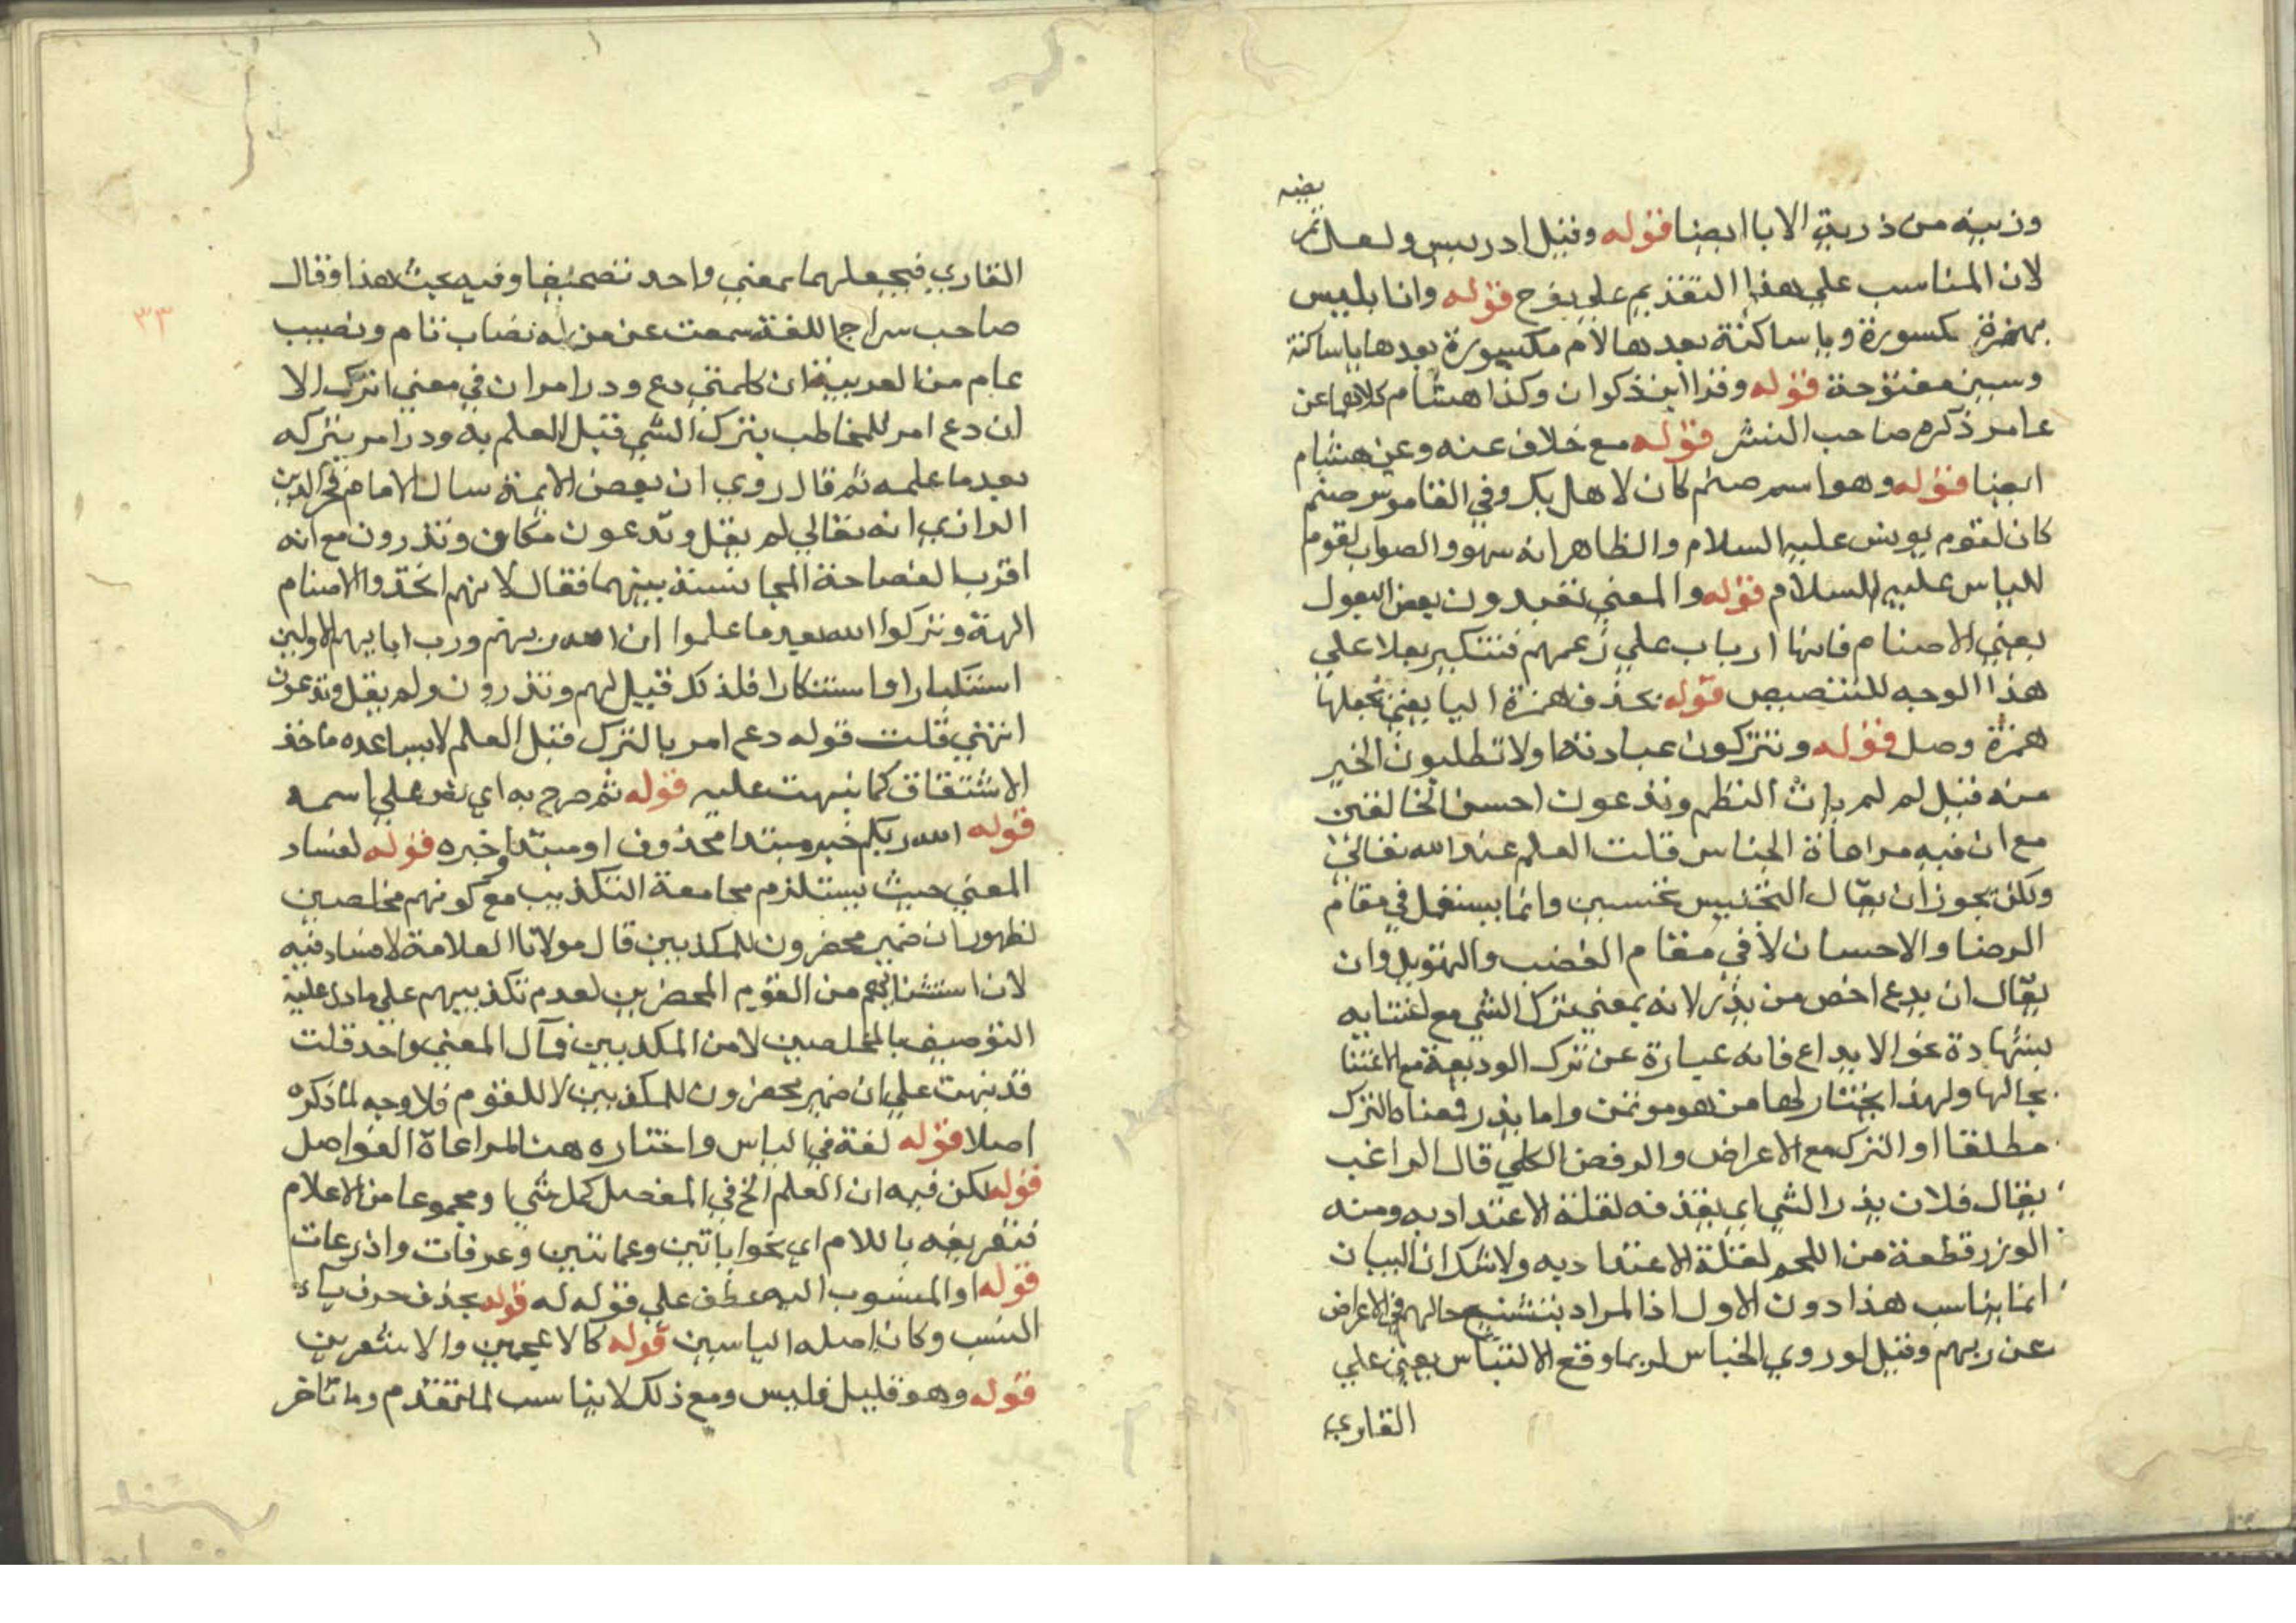 وذريته من ذرية الابا ايضا قوله وقيل ادريس ولعل تمر
يضه
لان المناسب على هذا التقديم على يفرح قوله وانا بليس
بهمزة مكسورة ويا ساكنة بعدها لام مكسورة بعدها يا ساكنة
وسين مفتوحة قوله وقرا ابن ذكوان وكذا هشام كلاهما عن
عامر ذكره صاحب النشر قوله مع خلاف عنه وعن هشام
ايضا قوله وهو اسم صنم كان لاهل بك وفي القاموس صنم
كان لقوم يونس عليه السلام والظاهر انه سهو والصواب لقوم
الياس عليه السلام قوله والمعني تعبدون بعض البعول
يعني الاصنام فانها ارباب علي زعمهم فتنكير بعلا علي
هذا الوجه للتبعيض قوله بحذف همزة اليا يعني بجعلها
همزة وصل قوله وتتركون عبادته او لا تطلبون الخير
منه قيل لم لم يات النظم وتدعون احسن الخالقين
مع ان فيه مراعاة الجناس قلت العلم عند الله تعالي
ولكن يجوز ان يقال التجنيس تحسين وانما يستعمل في مقام
الرضا والاحسان لا في مقام الغضب والتهويل وان
يقال ان يدع اخص من يذر لانه بمعني ترك الشي مع اعتنا به
بشهادة نحو الايداع فانه عبارة عن ترك الوديعة مع الاعتنا
بحالها ولهذا يختار لها من هو موتمن واما يذر فمعناه الترك
مطلقا او الترك مع الاعراض والرفض الكلي قال الراغب
يقال فلان يذر الشي اي يقذفه لقلة الاعتداد به ومنه
الوذر قطعة من اللحم لقلة الاعتداد به ولا شك ان البيان
انما يناسب هذا دون الاول اذ المراد تشنيع حالهم في الاعراض
عن ربهم وقيل لو روعي الجناس لربما وقع الالتباس يعني علي
القاري
القاري فيجعلهما بمعني واحد تصحيفا وفيه بحث هذا وقال
٣٣
صاحب سراج اللغة سمعت عن من له نصاب تام ونصيب
عام من العربية ان كلمتي دع وذر امران في معني اترك الا
ان دع امر للمخاطب بترك الشي قبل العلم به وذر امر بتركه
بعد ما علمه ثم قال روي ان بعض الايمة سال الامام فخر الدين
الرازي انه تعالي لم يقل وتدعون مكان وتذرون مع انه
اقرب الفصاحة المجانسة بينهما فقال لانهم اتخذوا الاصنام
الهة وتركوا الله بعد ما علموا ان الله ربهم ورب ابايهم الاولين
استكبارا واستنكارا فلذلك قيل لهم وتذرون ولم يقل وتدعون
انتهي قلت قوله دع امر بالترك قبل العلم لا يساعده ماخذ
الاشتقاق كما نبهت عليه قوله ثم صرح به اي نص علي اسمه
قوله الله ربكم خبر مبتدا محذوف او مبتدا وخبره قوله لفساد
المعني حيث يستلزم مجامعة التكذيب مع كونهم مخلصين
لظهور ان ضمير محضرون للمكذبين قال مولانا العلامة لا فساد فيه
لان استثناهم من القوم المحضرين لعدم تكذيبهم علي ما دل عليه
التوصيف بالمخلصين لا من المكذبين فمآل المعني واحد قلت
قد نبهت علي ان ضمير محضرون للمكذبين لا للقوم فلا وجه لما ذكره
اصلا قوله لغة في الياس واختاره هنا لمراعاة الفواصل
قوله لكن فيه ان العلم الخ في المفصل كل مثني او مجموعا من الاعلام
فتعريفه باللام اي نحو ابانين وعمايتين وعرفات واذرعات
قوله او المنسوب اليه عطف علي قوله له قوله بحذف حرف ياء
النسب وكان اصله الياسيين قوله كالاعجمين والاشعرين
قوله وهو قليل فليس ومع ذلك لا يناسب لما تقدم وما تاخر